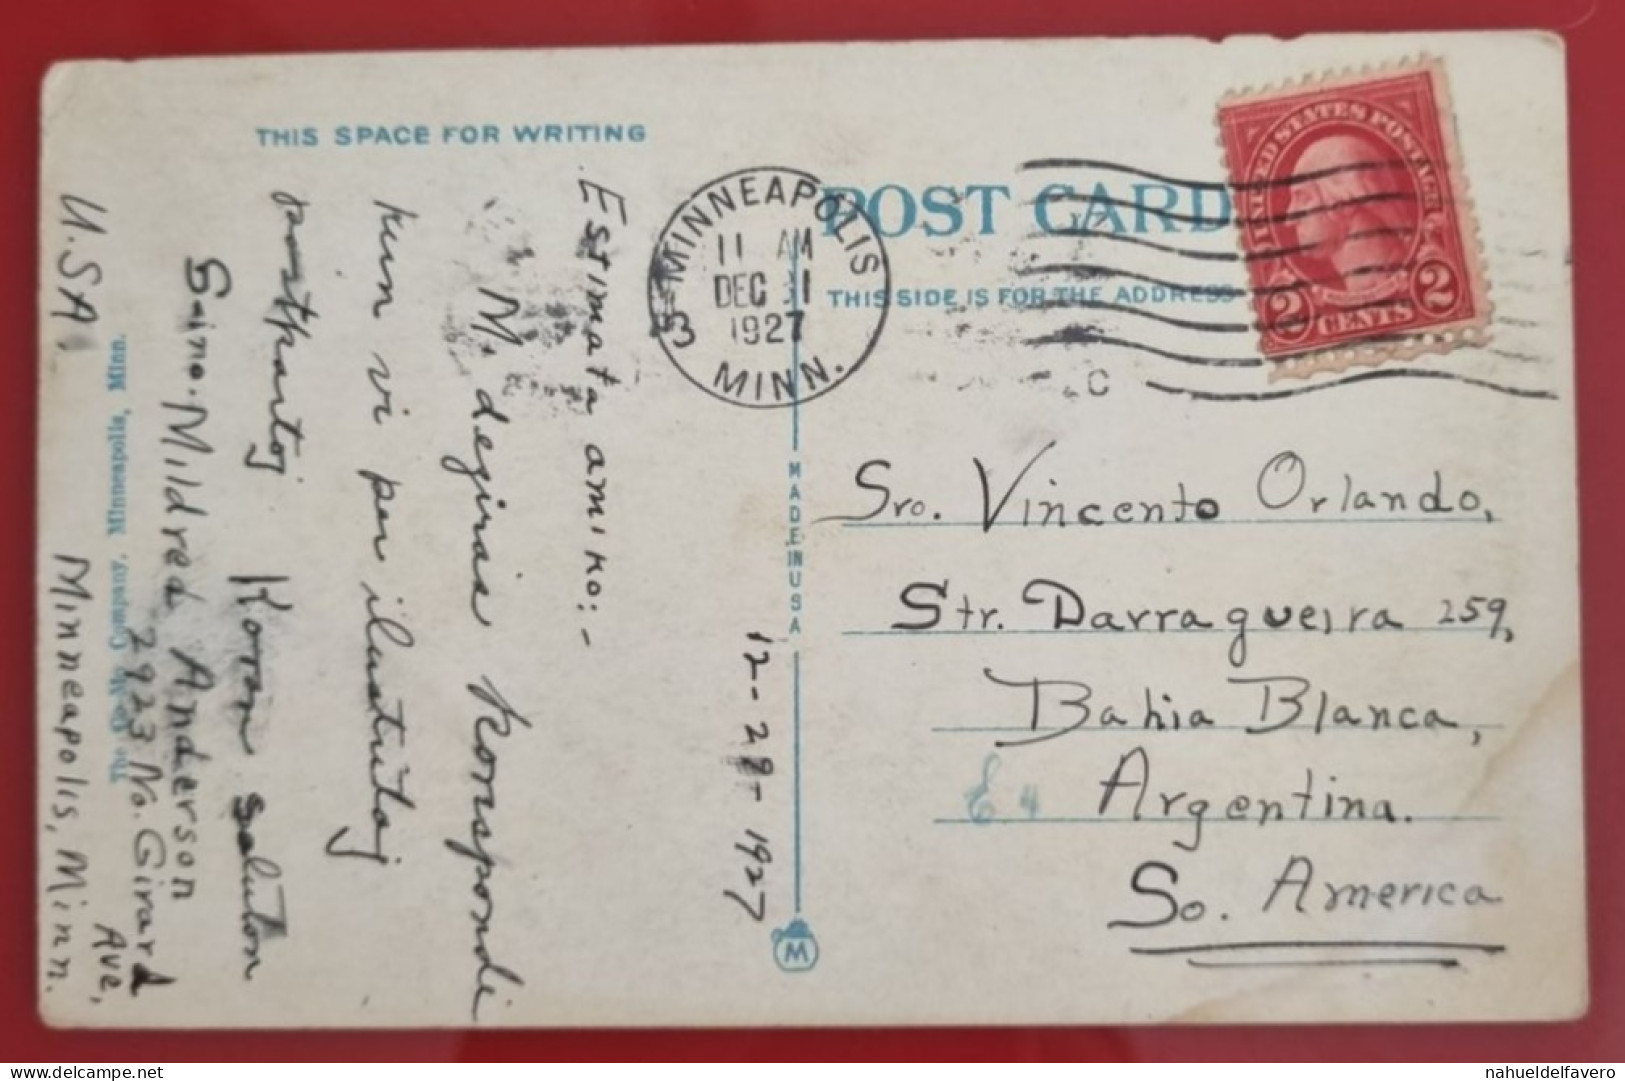 THIS SPACE FOR WRITING
Estimata amiko:-
M. deziras korespondi
kun vi per ilustritaj
postkartoj
Koran saluton
S-ino. Mildred Anderson
2923 No. Girard
Ave,
Minneapolis, Minn.
U.S.A.
12-29-1927
Minneapolis, Minn.
MADE IN USA
M
MINNEAPOLIS
11 AM
DEC 31
1927
MINN.
3
POST CARD
THIS SIDE IS FOR THE ADDRESS
UNITED STATES POSTAGE
2 CENTS 2
Sro. Vincento Orlando,
Str. Darragueira 259,
Bahia Blanca,
Argentina.
So. America
nahueldelfavero